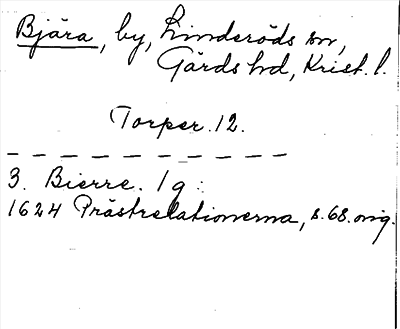 Bjära, by, Linderöds sn,
Gärds hd, Krist. l.
Torper. 12.
3. Bierre. 1 g:
1624 Prästrelationerna, s. 68. orig.